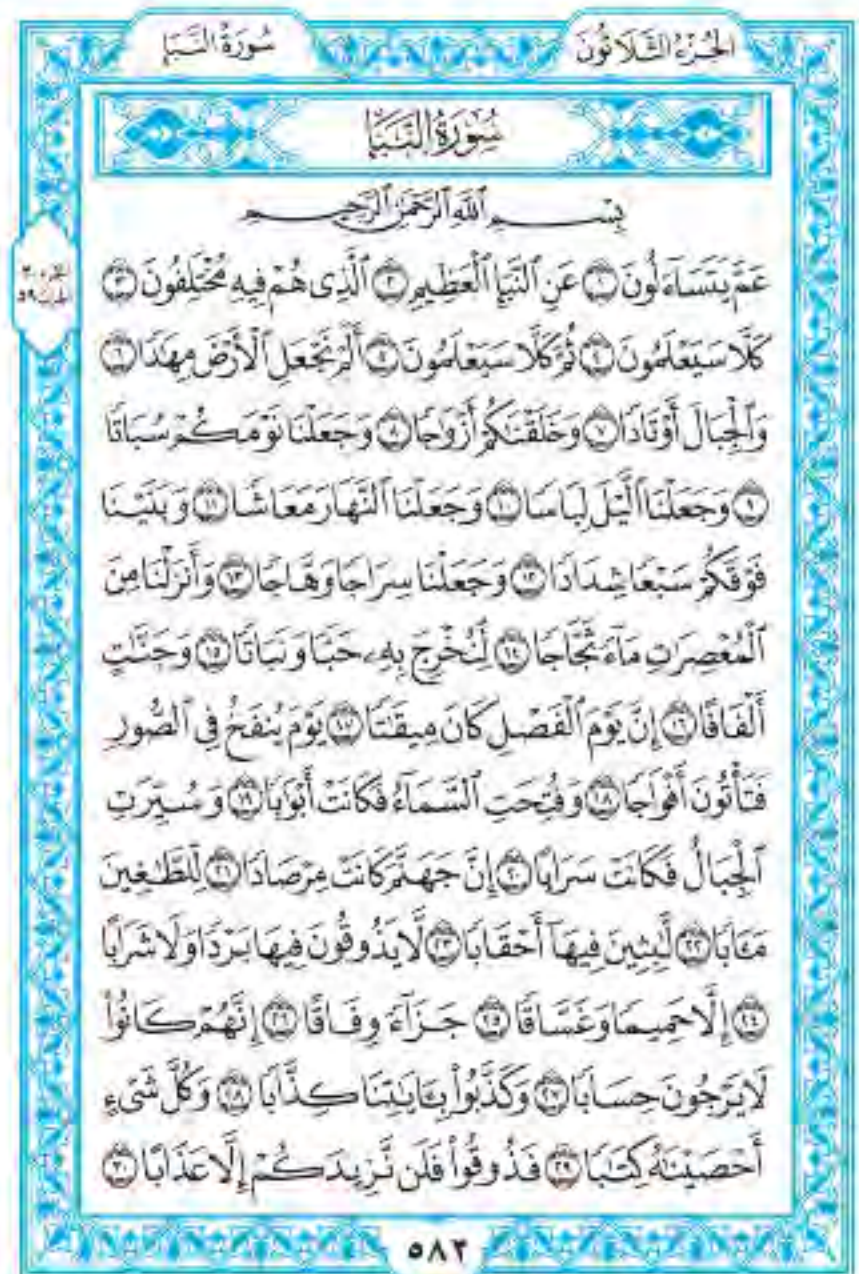 الجُزْءُ الثَّلَاثُونَ
سُورَةُ النَّبَإِ
سُورَةُ النَّبَإِ
بِسْمِ ٱللَّهِ ٱلرَّحْمَٰنِ ٱلرَّحِيمِ
عَمَّ يَتَسَآءَلُونَ ١ عَنِ ٱلنَّبَإِ ٱلْعَظِيمِ ٢ ٱلَّذِى هُمْ فِيهِ مُخْتَلِفُونَ ٣
كَلَّا سَيَعْلَمُونَ ٤ ثُمَّ كَلَّا سَيَعْلَمُونَ ٥ أَلَمْ نَجْعَلِ ٱلْأَرْضَ مِهَٰدًا ٦
وَٱلْجِبَالَ أَوْتَادًا ٧ وَخَلَقْنَٰكُمْ أَزْوَٰجًا ٨ وَجَعَلْنَا نَوْمَكُمْ سُبَاتًا
٩ وَجَعَلْنَا ٱلَّيْلَ لِبَاسًا ١٠ وَجَعَلْنَا ٱلنَّهَارَ مَعَاشًا ١١ وَبَنَيْنَا
فَوْقَكُمْ سَبْعًا شِدَادًا ١٢ وَجَعَلْنَا سِرَاجًا وَهَّاجًا ١٣ وَأَنزَلْنَا مِنَ
ٱلْمُعْصِرَٰتِ مَآءً ثَجَّاجًا ١٤ لِّنُخْرِجَ بِهِۦ حَبًّا وَنَبَاتًا ١٥ وَجَنَّٰتٍ
أَلْفَافًا ١٦ إِنَّ يَوْمَ ٱلْفَصْلِ كَانَ مِيقَٰتًا ١٧ يَوْمَ يُنفَخُ فِى ٱلصُّورِ
فَتَأْتُونَ أَفْوَاجًا ١٨ وَفُتِحَتِ ٱلسَّمَآءُ فَكَانَتْ أَبْوَٰبًا ١٩ وَسُيِّرَتِ
ٱلْجِبَالُ فَكَانَتْ سَرَابًا ٢٠ إِنَّ جَهَنَّمَ كَانَتْ مِرْصَادًا ٢١ لِّلطَّٰغِينَ
مَـَٔابًا ٢٢ لَّٰبِثِينَ فِيهَآ أَحْقَابًا ٢٣ لَّا يَذُوقُونَ فِيهَا بَرْدًا وَلَا شَرَابًا
٢٤ إِلَّا حَمِيمًا وَغَسَّاقًا ٢٥ جَزَآءً وِفَاقًا ٢٦ إِنَّهُمْ كَانُوا۟
لَا يَرْجُونَ حِسَابًا ٢٧ وَكَذَّبُوا۟ بِـَٔايَٰتِنَا كِذَّابًا ٢٨ وَكُلَّ شَىْءٍ
أَحْصَيْنَٰهُ كِتَٰبًا ٢٩ فَذُوقُوا۟ فَلَن نَّزِيدَكُمْ إِلَّا عَذَابًا ٣٠
الجزء ٣٠
الحزب ٥٩
٥٨٢